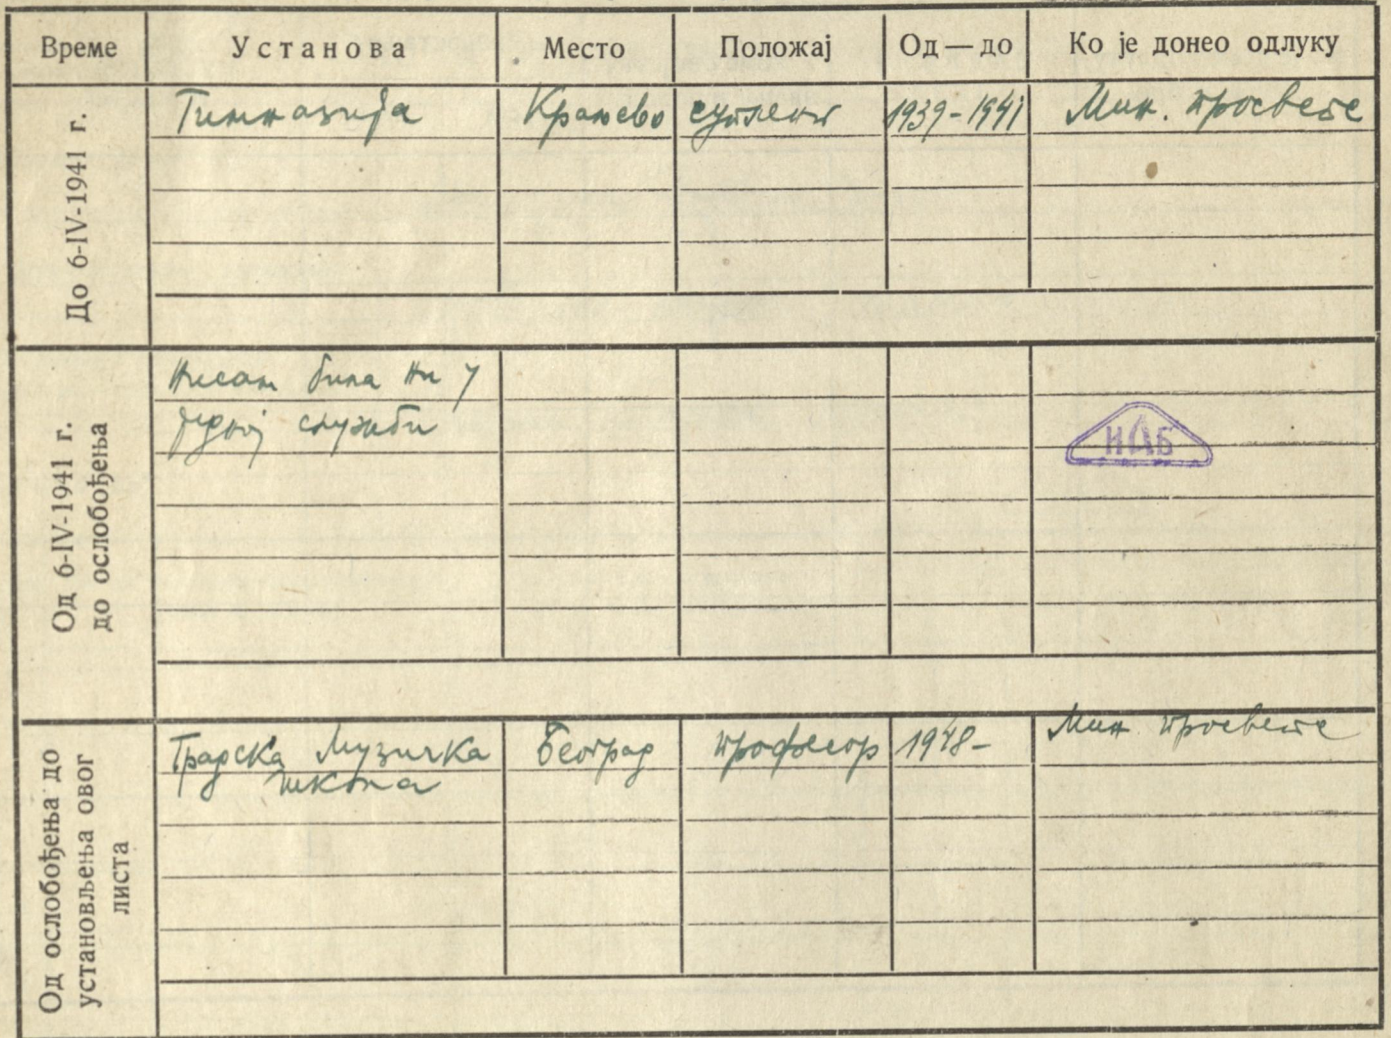 Време Установа Место Положај Од—до Ко је донео одлуку
До 6-IV-1941 г.
Гимназија Краљево суплент 1939-1941 Мин. просвете
Од 6-IV-1941 г.
до ослобођења
Нисам била ни у
једној служби
ИАБ
Од ослобођења до
установљења овог
листа
Градска Музичка Београд професор 1948- Мин просвете
школа